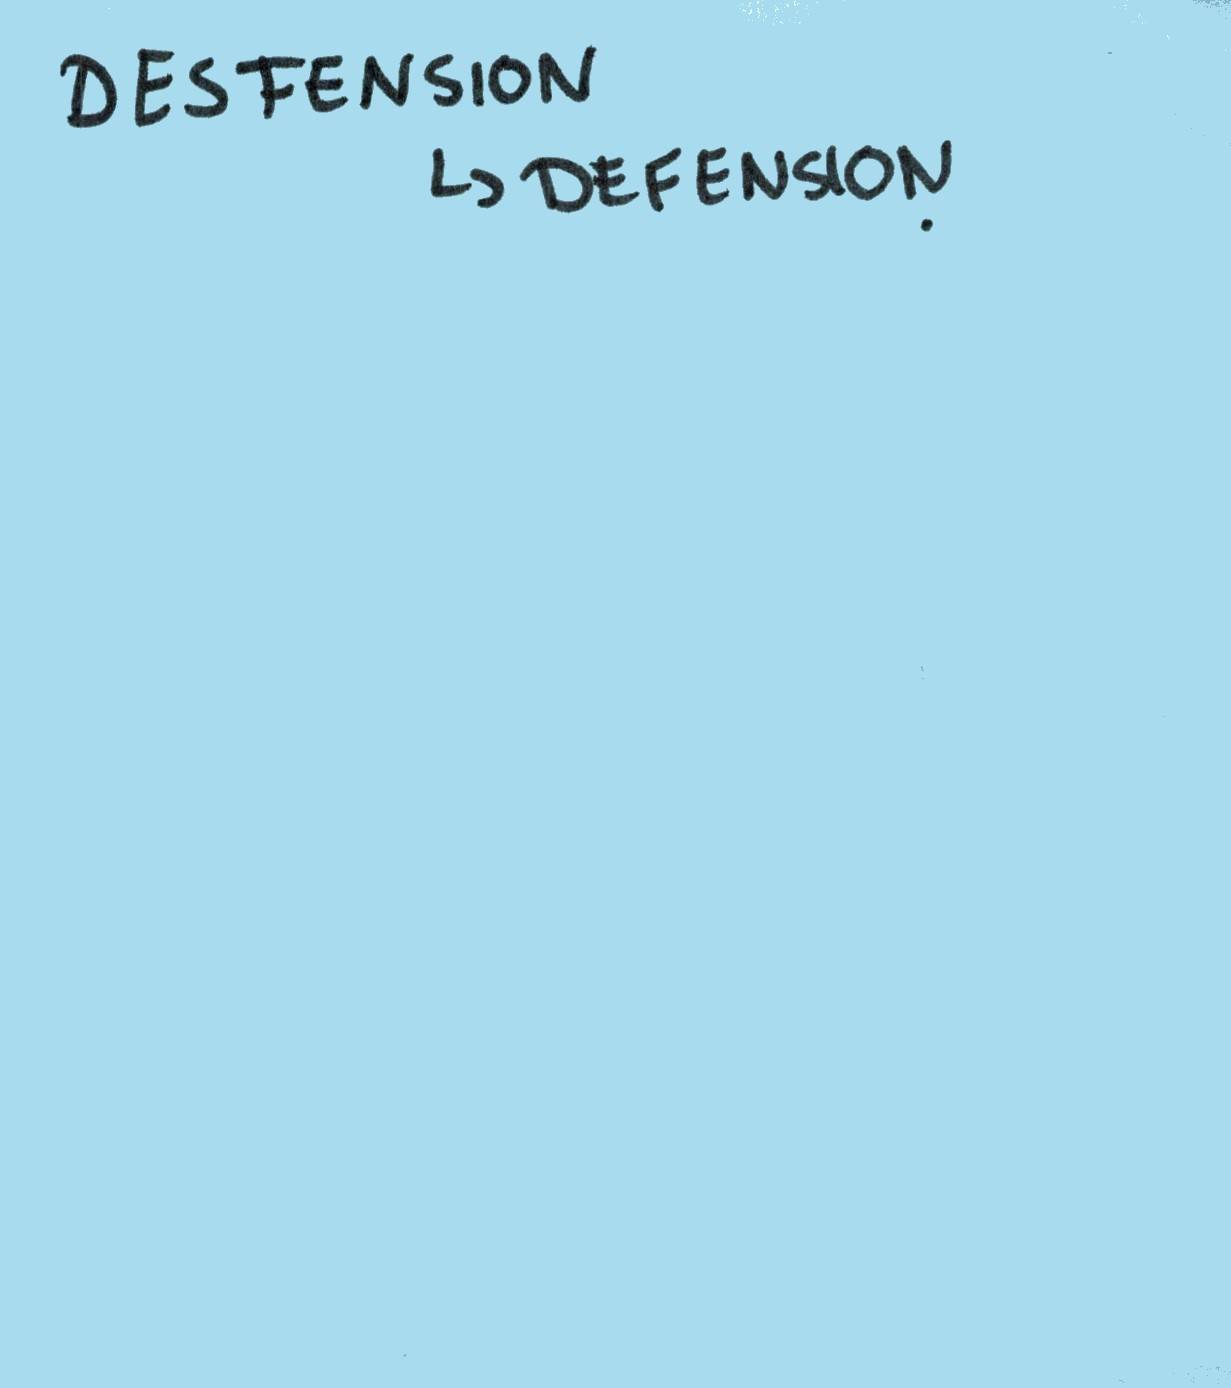 DESFENSION
↳ DEFENSION.